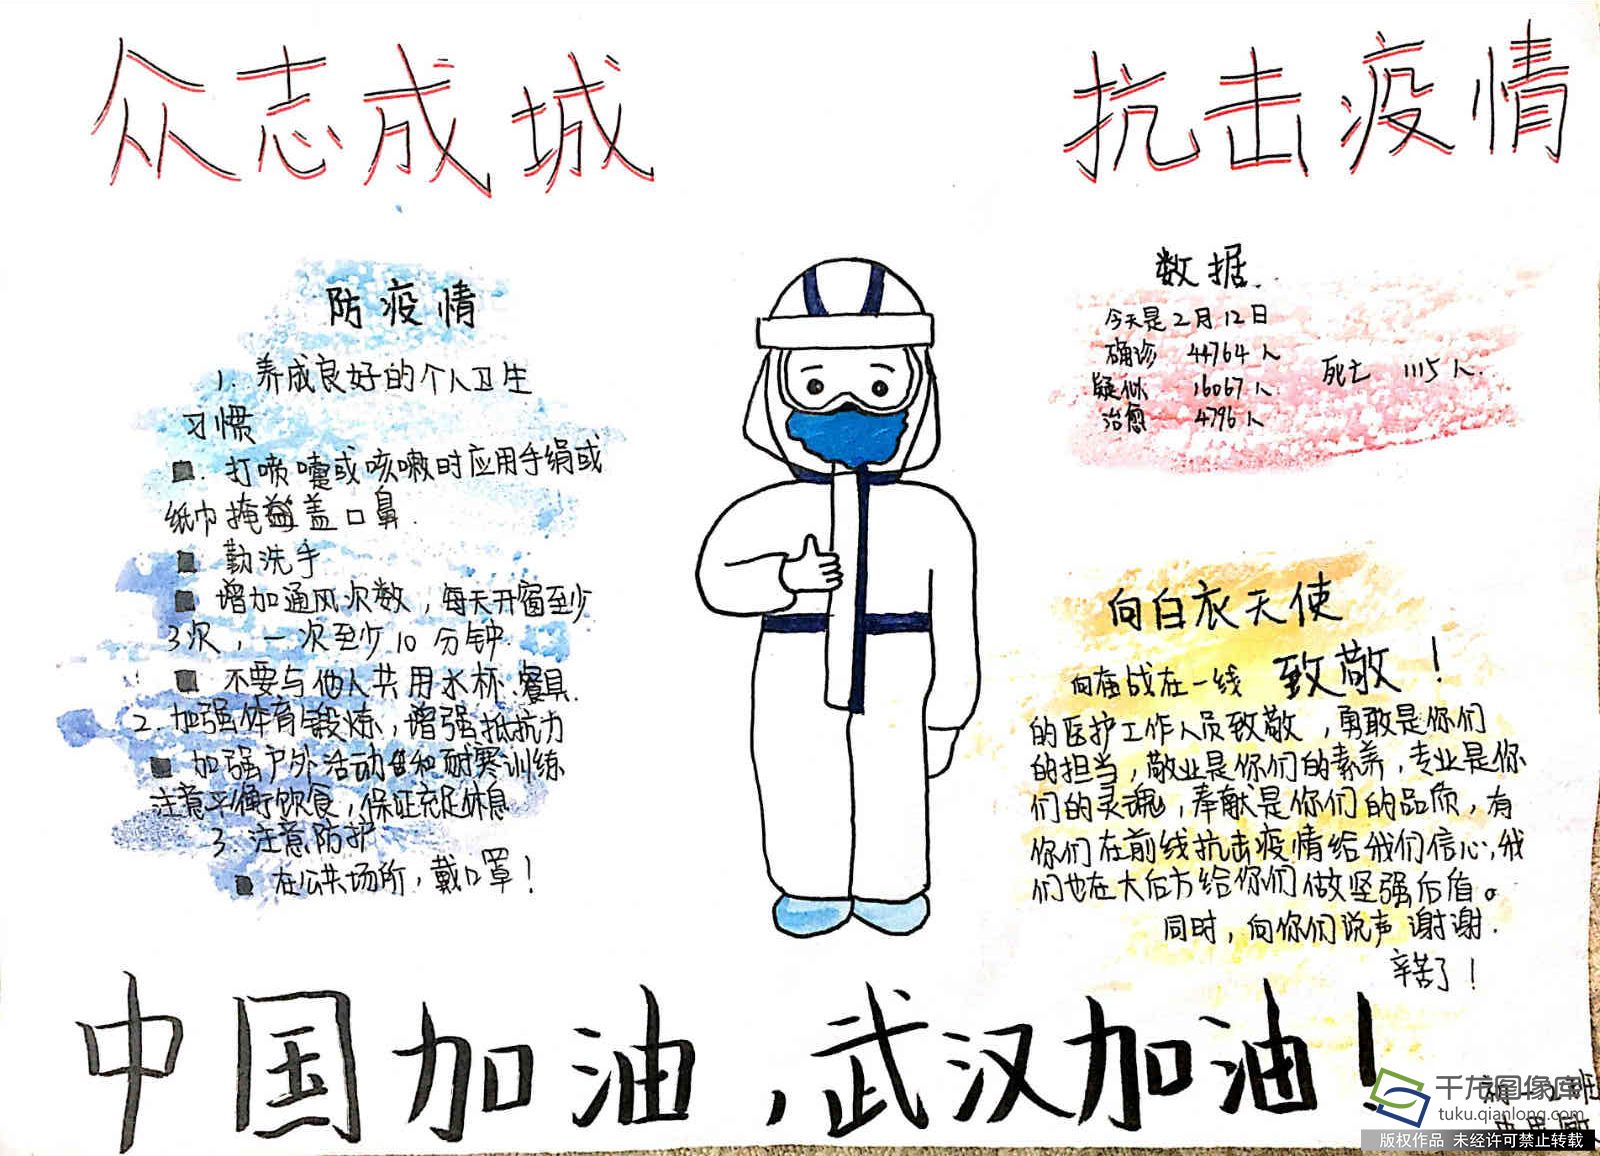 众志成城
抗击疫情
防疫情
1. 养成良好的个人卫生
习惯
■. 打喷嚏或咳嗽时应用手绢或
纸巾掩盖口鼻.
■ 勤洗手
■ 增加通风次数，每天开窗至少
3次，一次至少10分钟.
■ 不要与他人共用水杯、餐具.
2. 加强体育锻炼，增强抵抗力
■ 加强户外活动和耐寒训练
注意平衡饮食，保证充足休息
3. 注意防护
■ 在公共场所，戴口罩！
数据.
今天是2月12日
确诊 44764人
死亡 1115人.
疑似 16067人
治愈 4796人
向白衣天使
致敬！
向奋战在一线
的医护工作人员致敬，勇敢是你们
的担当，敬业是你们的素养，专业是你
们的灵魂，奉献是你们的品质，有
你们在前线抗击疫情给我们信心，我
们也在大后方给你们做坚强后盾。
同时，向你们说声谢谢.
辛苦了！
中国加油，武汉加油！
千龙图像库
tuku.qianlong.com
版权作品 未经许可禁止转载